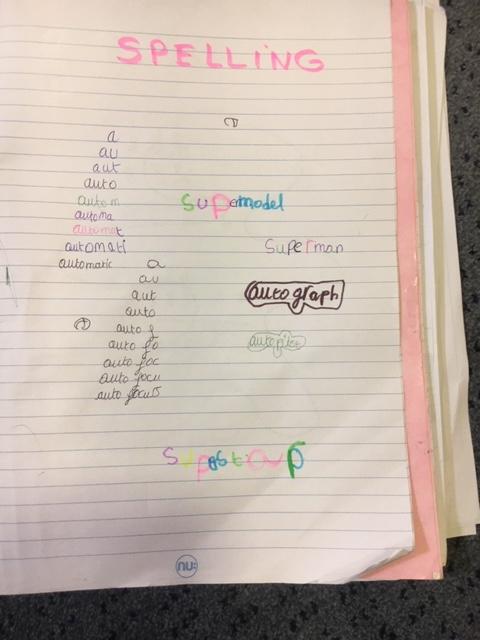 SPELLING
a
au
aut
auto
autom
automa
automat
automati
automatic
a
au
aut
auto
auto f
auto fo
auto foc
auto focu
auto focus
Supermodel
Superman
autograph
nu: